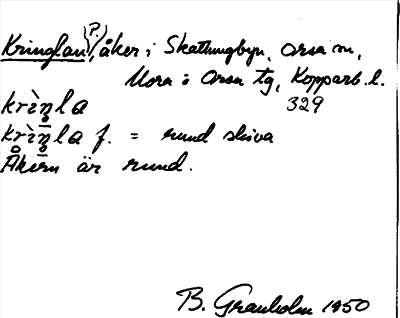 Kringlan(?), åker i Skattungbyn, Orsa sn,
Mora o Orsa tg, Kopparb. l.
krìŋla 329
krìŋla f. = rund skiva
Åkern är rund.
B. Granholm 1950